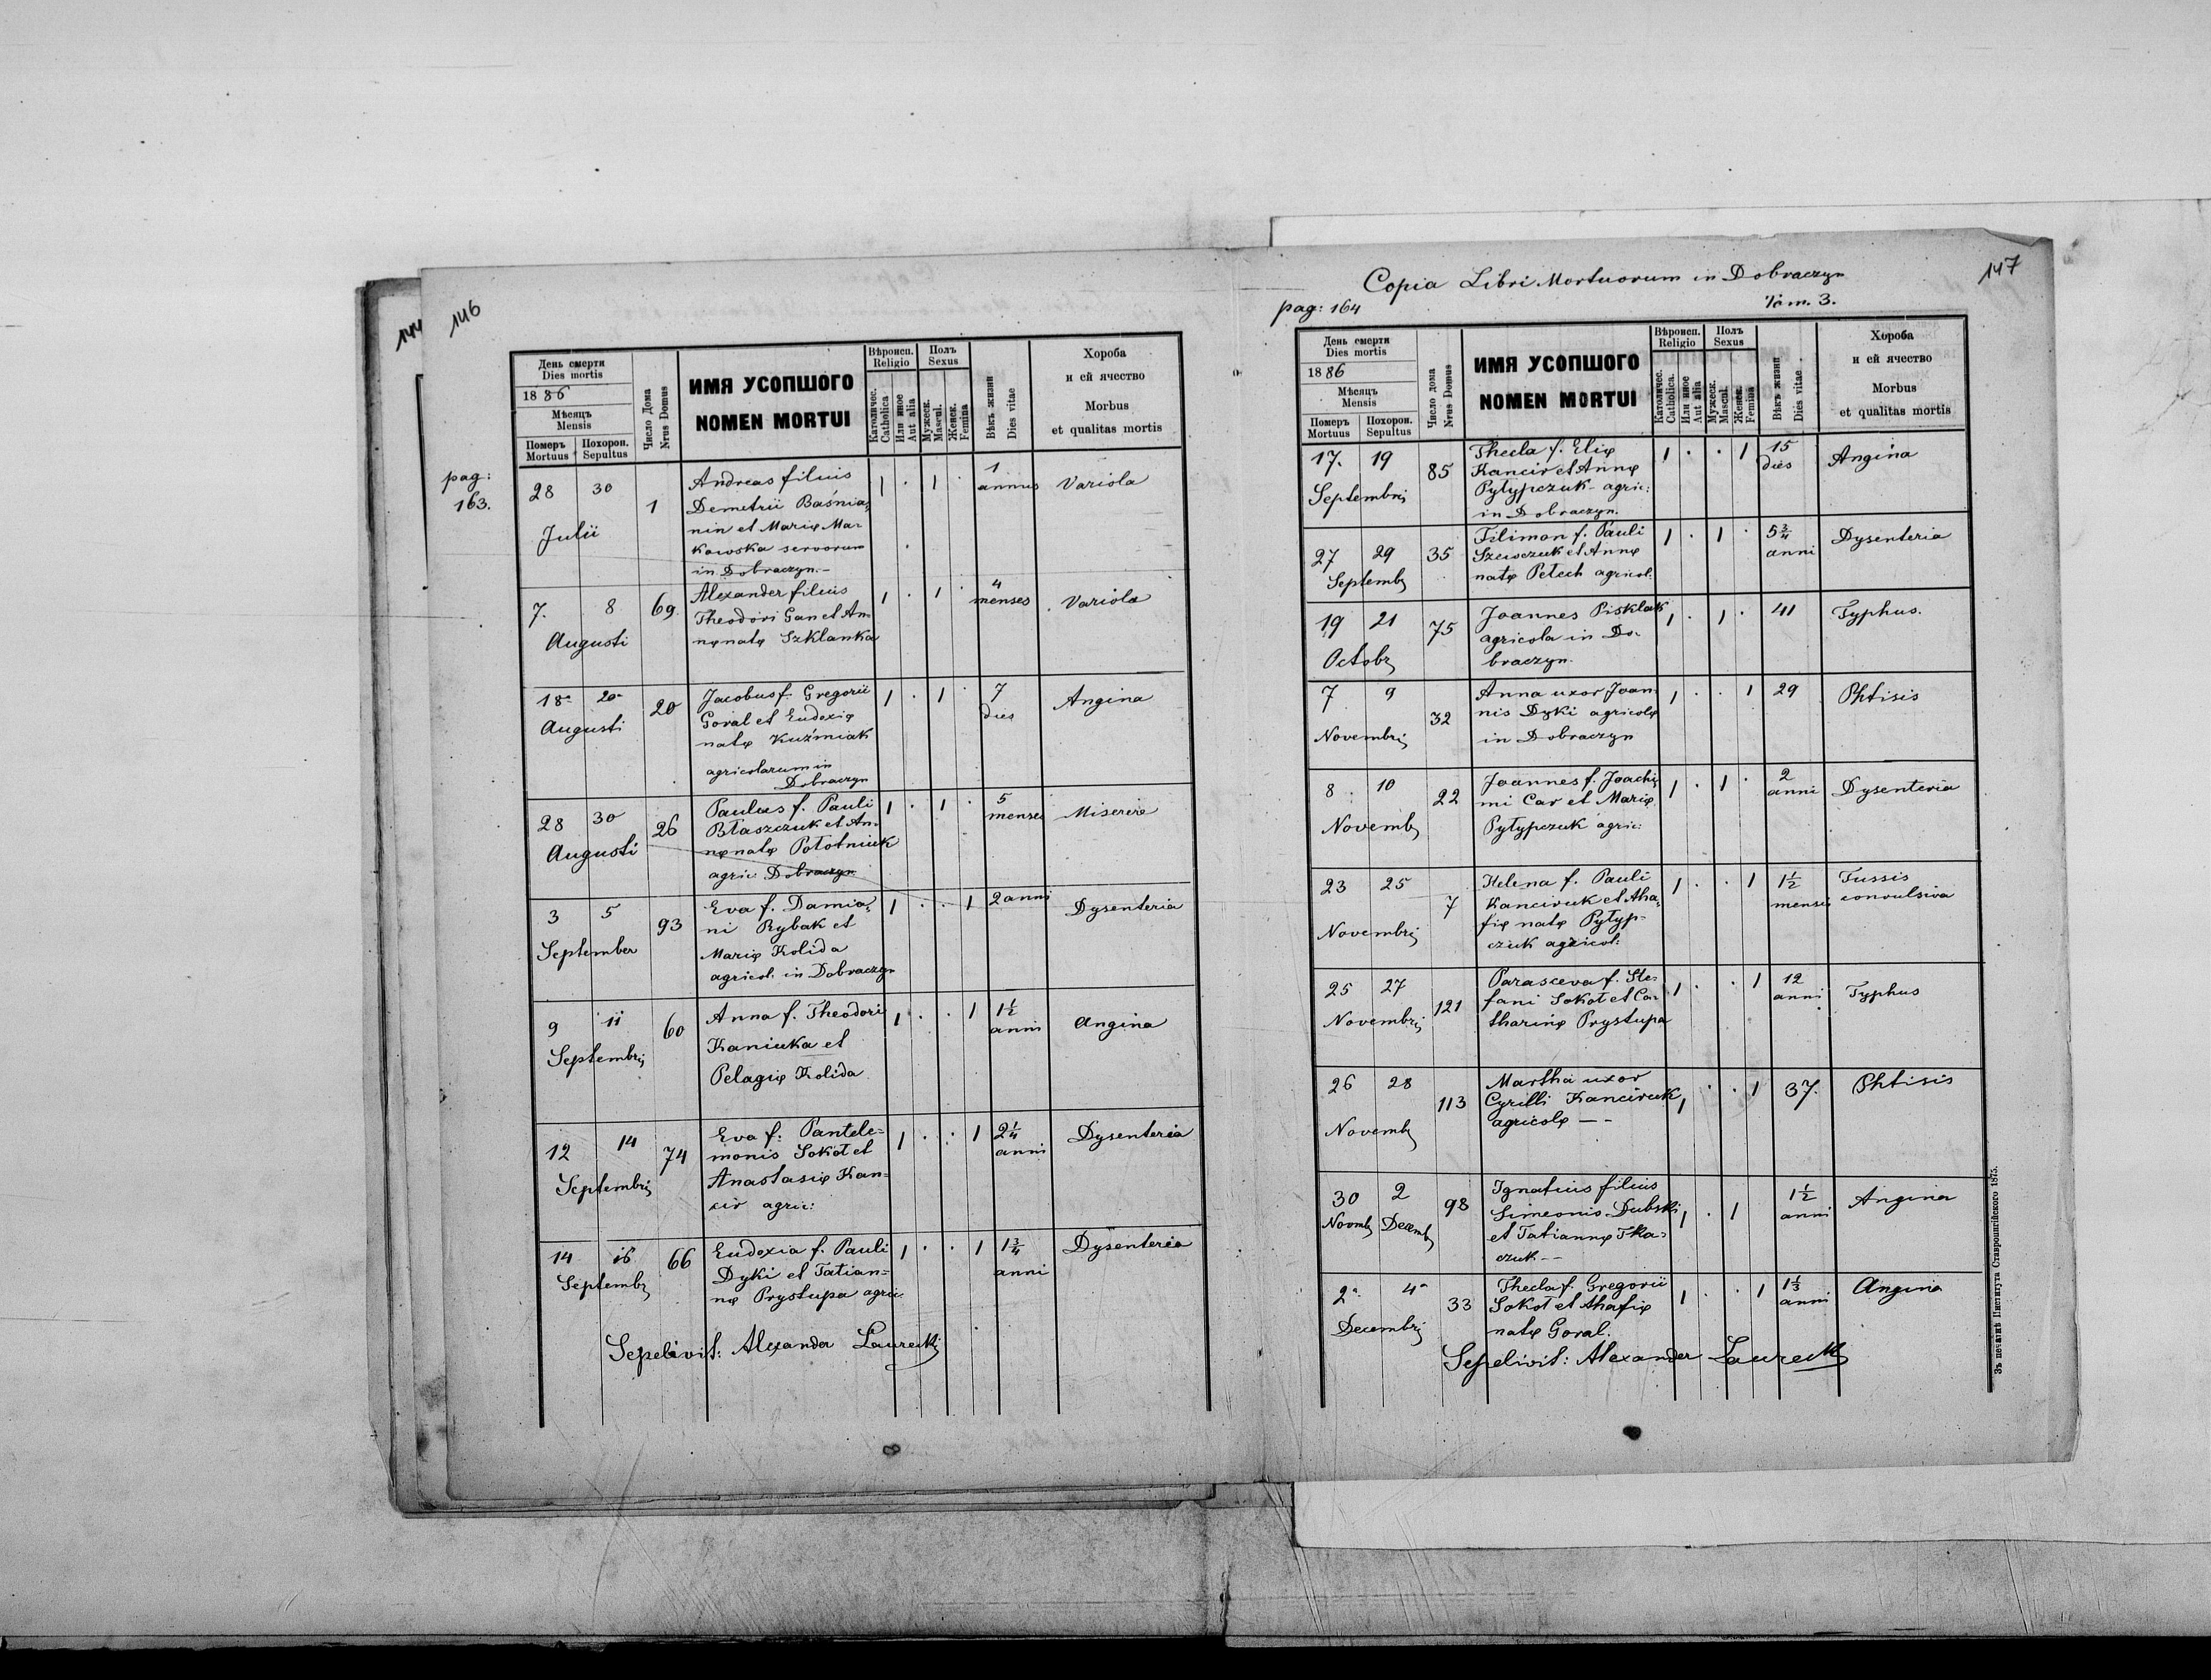 144
146
День смерти
Dies mortis
1886
Мѣсяцъ
Mensis
Померъ
Mortuus
Похорон.
Sepultus
Число Дома
Nrus Domus
ИМЯ УСОПШОГО
NOMEN MORTUI
Вѣроисп.
Religio
Католичес.
Catholica
Или иное
Aut alia
Полъ
Sexus
Мужеск.
Mascul.
Женск.
Femina
Вѣкъ жизни
Dies vitae
Хороба
и ей ячество
Morbus
et qualitas mortis
pag:
163.
28 30
Julii
1
Andreas filius
Demetrii Baśnia=
nin et Mariæ Ma=
kowska servorum
in Dobraczyn.-
1 . 1 .
1
annus
Variola
7. 8
Augusti
69.
Alexander filius
Theodori Gan et An=
næ natæ Szklanka
1 . 1 .
4
menses
Variola
18. 20.
Augusti
20
Jacobus f. Gregorii
Goral et Eudoxiæ
natæ Kuźmiak
agricolarum in
Dobraczyn
1 . 1 .
7
dies
Angina
28 30
Augusti
26
Paulus f. Pauli
Błaszczuk et An=
næ natæ Połotniuk
agric: Dobraczyn
1 . 1 .
5
menses
Miserere
3 5
September
93
Eva f. Damia=
ni Rybak et
Mariæ Kolida
agricol. in Dobraczyn
1 . . 1
2 anni
Dysenteria
9 11
Septembris
60
Anna f. Theodori
Kaniuka et
Pelagiæ Kolida
1 . . 1
1½
anni
Angina
12 14
Septembris
74
Eva f: Pantele=
monis Sokoł et
Anastasiæ Kan=
cir agric:
1 . . 1
2¼
anni
Dysenteria
14 16
Septemb
66
Eudoxia f. Pauli
Dyki et Tatian=
næ Prystupa agric:
1 . . 1
1¾
anni
Dysenteria
Sepelivit: Alexander Laurecki
Copia Libri Mortuorum in Dobraczyn
147
pag: 164
Tom. 3.
День смерти
Dies mortis
1886
Мѣсяцъ
Mensis
Померъ
Mortuus
Похорон.
Sepultus
Число дома
Nrus Domus
ИМЯ УСОПШОГО
NOMEN MORTUI
Вѣроисп.
Religio
Католичес.
Catholica.
Или иное
Aut alia
Полъ
Sexus
Мужеск.
Mascul.
Женск.
Femina
Вѣкъ жизни
Dies vitae
Хороба
и ей ячество
Morbus
et qualitas mortis
17. 19
Septembris
85
Thecla f. Eliæ
Kancir et Annæ
Pyłypczuk - agric:
in Dobraczyn.
1 . . 1
15
dies
Angina
27 29
Septemb
35
Filimon f. Pauli
Szewczuk et Annæ
natæ Pełech agricol:
1 . 1 .
5¾
anni
Dysenteria
19 21
Octobr
75
Joannes Pisklak
agricola in Do=
braczyn.
1 . 1 .
41
Typhus.
7 9
Novembris
32
Anna uxor Joan=
nis Dyki agricolæ
in Dobraczyn
1 . . 1
29
Phtisis
8. 10
Novemb
22
Joannes f. Joachi=
mi Car et Mariæ
Pyłypczuk agric:
1 . 1 .
2
anni
Dysenteria
23 25
Novembris
7
Helena f. Pauli
Kanciruk et Aha=
fiæ natæ Pyłyp=
czuk agricol:
1 . . 1
1½
mensis
Tussis
convulsiva
25 27
Novembris
121
Parasceva f. Ste=
fani Sokoł et Ca=
tharinæ Prystupa
1 . . 1
12
anni
Typhus
26 28
Novemb
113
Martha uxor
Cyrilli Kanciruk
agricolæ — -
1 . . 1
37.
Phtisis
30 2
Novmb Decemb
98
Ignatius filius
Simeonis Dubski
et Tatiannæ Tka=
czuk --
1 . 1
1½
anni
Angina
2. 4.
Decembris
33
Thecla f. Gregorii
Sokoł et Ahafiæ
natæ Goral.
1 . . 1
1⅓
anni
Angina
Sepelivit: Alexander Laurecki
Зъ печатнѣ Института Ставропигійского 1875.